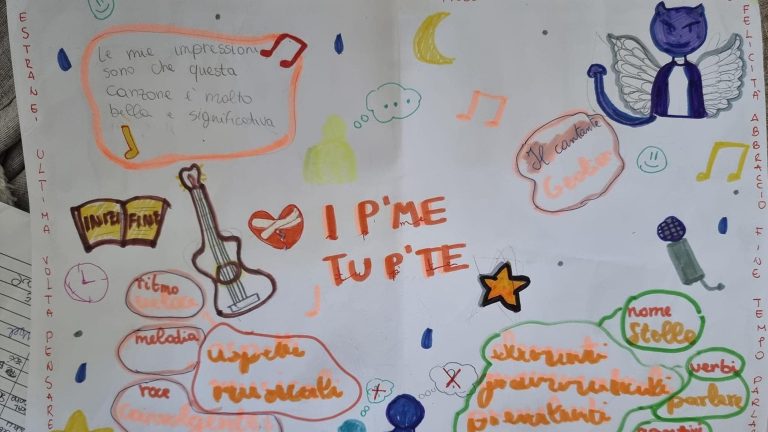 Le mie impressioni
sono che questa
canzone è molto
bella e significativa
Il cantante
Geolier
INIZI FINE
I P'ME
TU P'TE
ritmo
melodia
voce
coinvolgente
aspetti
musicali
elementi
grammaticali
nome
Stelle
verbi
parlare
ESTRANE' ULTIMA VOLTA PENSARE
FELICITÀ ABBRACCIO FINE TEMPO PARLA